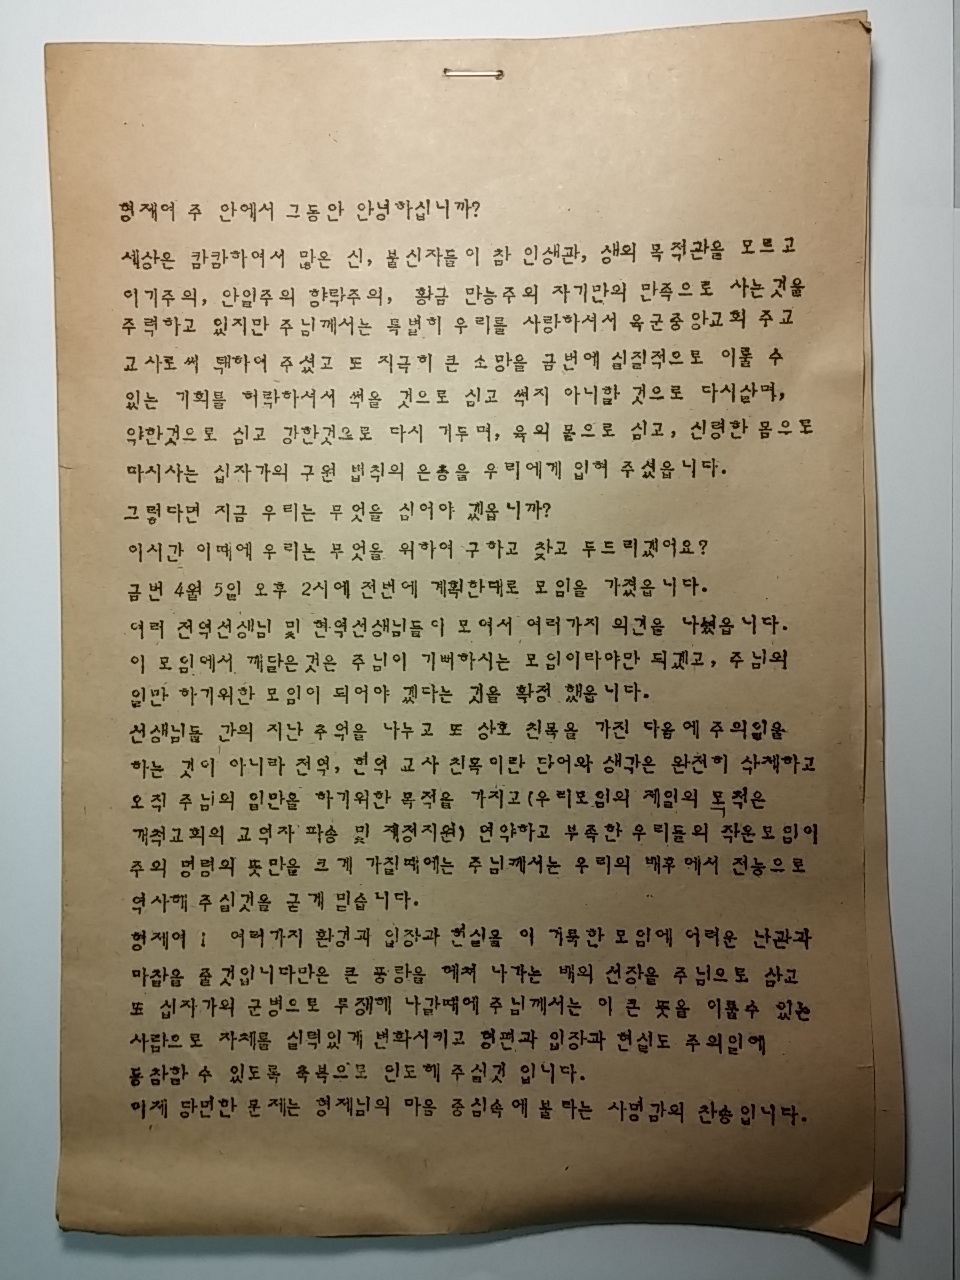 형제여 주 안에서 그동안 안녕하십니까?
세상은 캄캄하여서 많은 신, 불신자들이 참 인생관, 생의 목적관을 모르고
이기주의, 안일주의 향락주의, 황금 만능주의 자기만의 만족으로 사는것을
주력하고 있지만 주님께서는 특별히 우리를 사랑하셔서 육군중앙교회 주교
교사로써 택하여 주셨고 또 지극히 큰 소망을 금번에 실질적으로 이룰 수
있는 기회를 허락하셔서 썩을 것으로 심고 썩지 아니할 것으로 다시살며,
약한것으로 심고 강한것으로 다시 거두며, 육의 몸으로 심고, 신령한 몸으로
다시사는 십자가의 구원 법칙의 은총을 우리에게 입혀 주셨읍니다.
그렇다면 지금 우리는 무엇을 심어야 겠읍니까?
이시간 이때에 우리는 무엇을 위하여 구하고 찾고 두드리겠어요?
금번 4월 5일 오후 2시에 전번에 계획한대로 모임을 가졌읍니다.
여러 전역선생님 및 현역선생님들이 모여서 여러가지 의견을 나눴읍니다.
이 모임에서 깨달은것은 주님이 기뻐하시는 모임이라야만 되겠고, 주님의
일만 하기위한 모임이 되어야 겠다는 것을 확정 했읍니다.
선생님들 간의 지난 추억을 나누고 또 상호 친목을 가진 다음에 주의일을
하는 것이 아니라 전역, 현역 교사 친목이란 단어와 생각은 완전히 삭제하고
오직 주님의 일만을 하기위한 목적을 가지고(우리모임의 제일의 목적은
개척교회의 교역자 파송 및 재정지원) 연약하고 부족한 우리들의 작은모임이
주의 명령의 뜻만을 크게 가질때에는 주님께서는 우리의 배후에서 전능으로
역사해 주실것을 굳게 믿습니다.
형제여! 여러가지 환경과 입장과 현실을 이 거룩한 모임에 어려운 난관과
마찰을 줄것입니다만은 큰 풍랑을 헤쳐 나가는 배의 선장을 주님으로 삼고
또 십자가의 군병으로 무장해 나갈때에 주님께서는 이 큰 뜻을 이룰수 있는
사람으로 자체를 실력있게 변화시키고 형편과 입장과 현실도 주의일에
동참할 수 있도록 축복으로 인도해 주실것 입니다.
이제 당면한 문제는 형제님의 마음 중심속에 불타는 사명감의 찬송입니다.